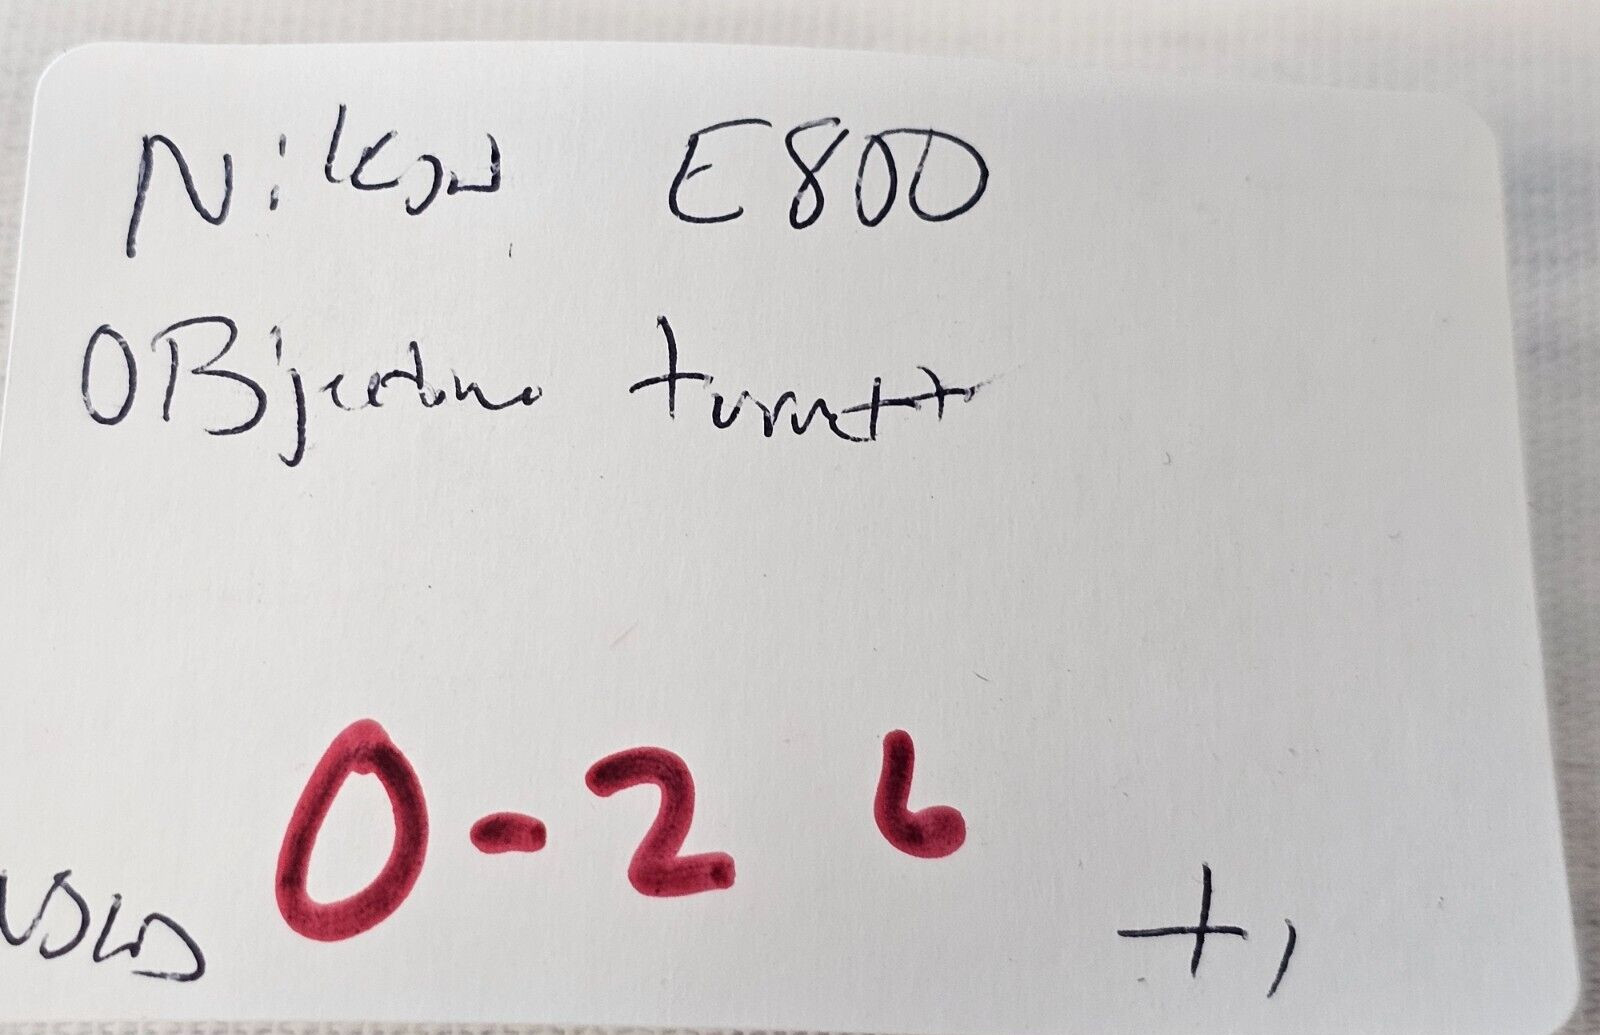 Nikon E800
OBjective turrett
0-26
+,